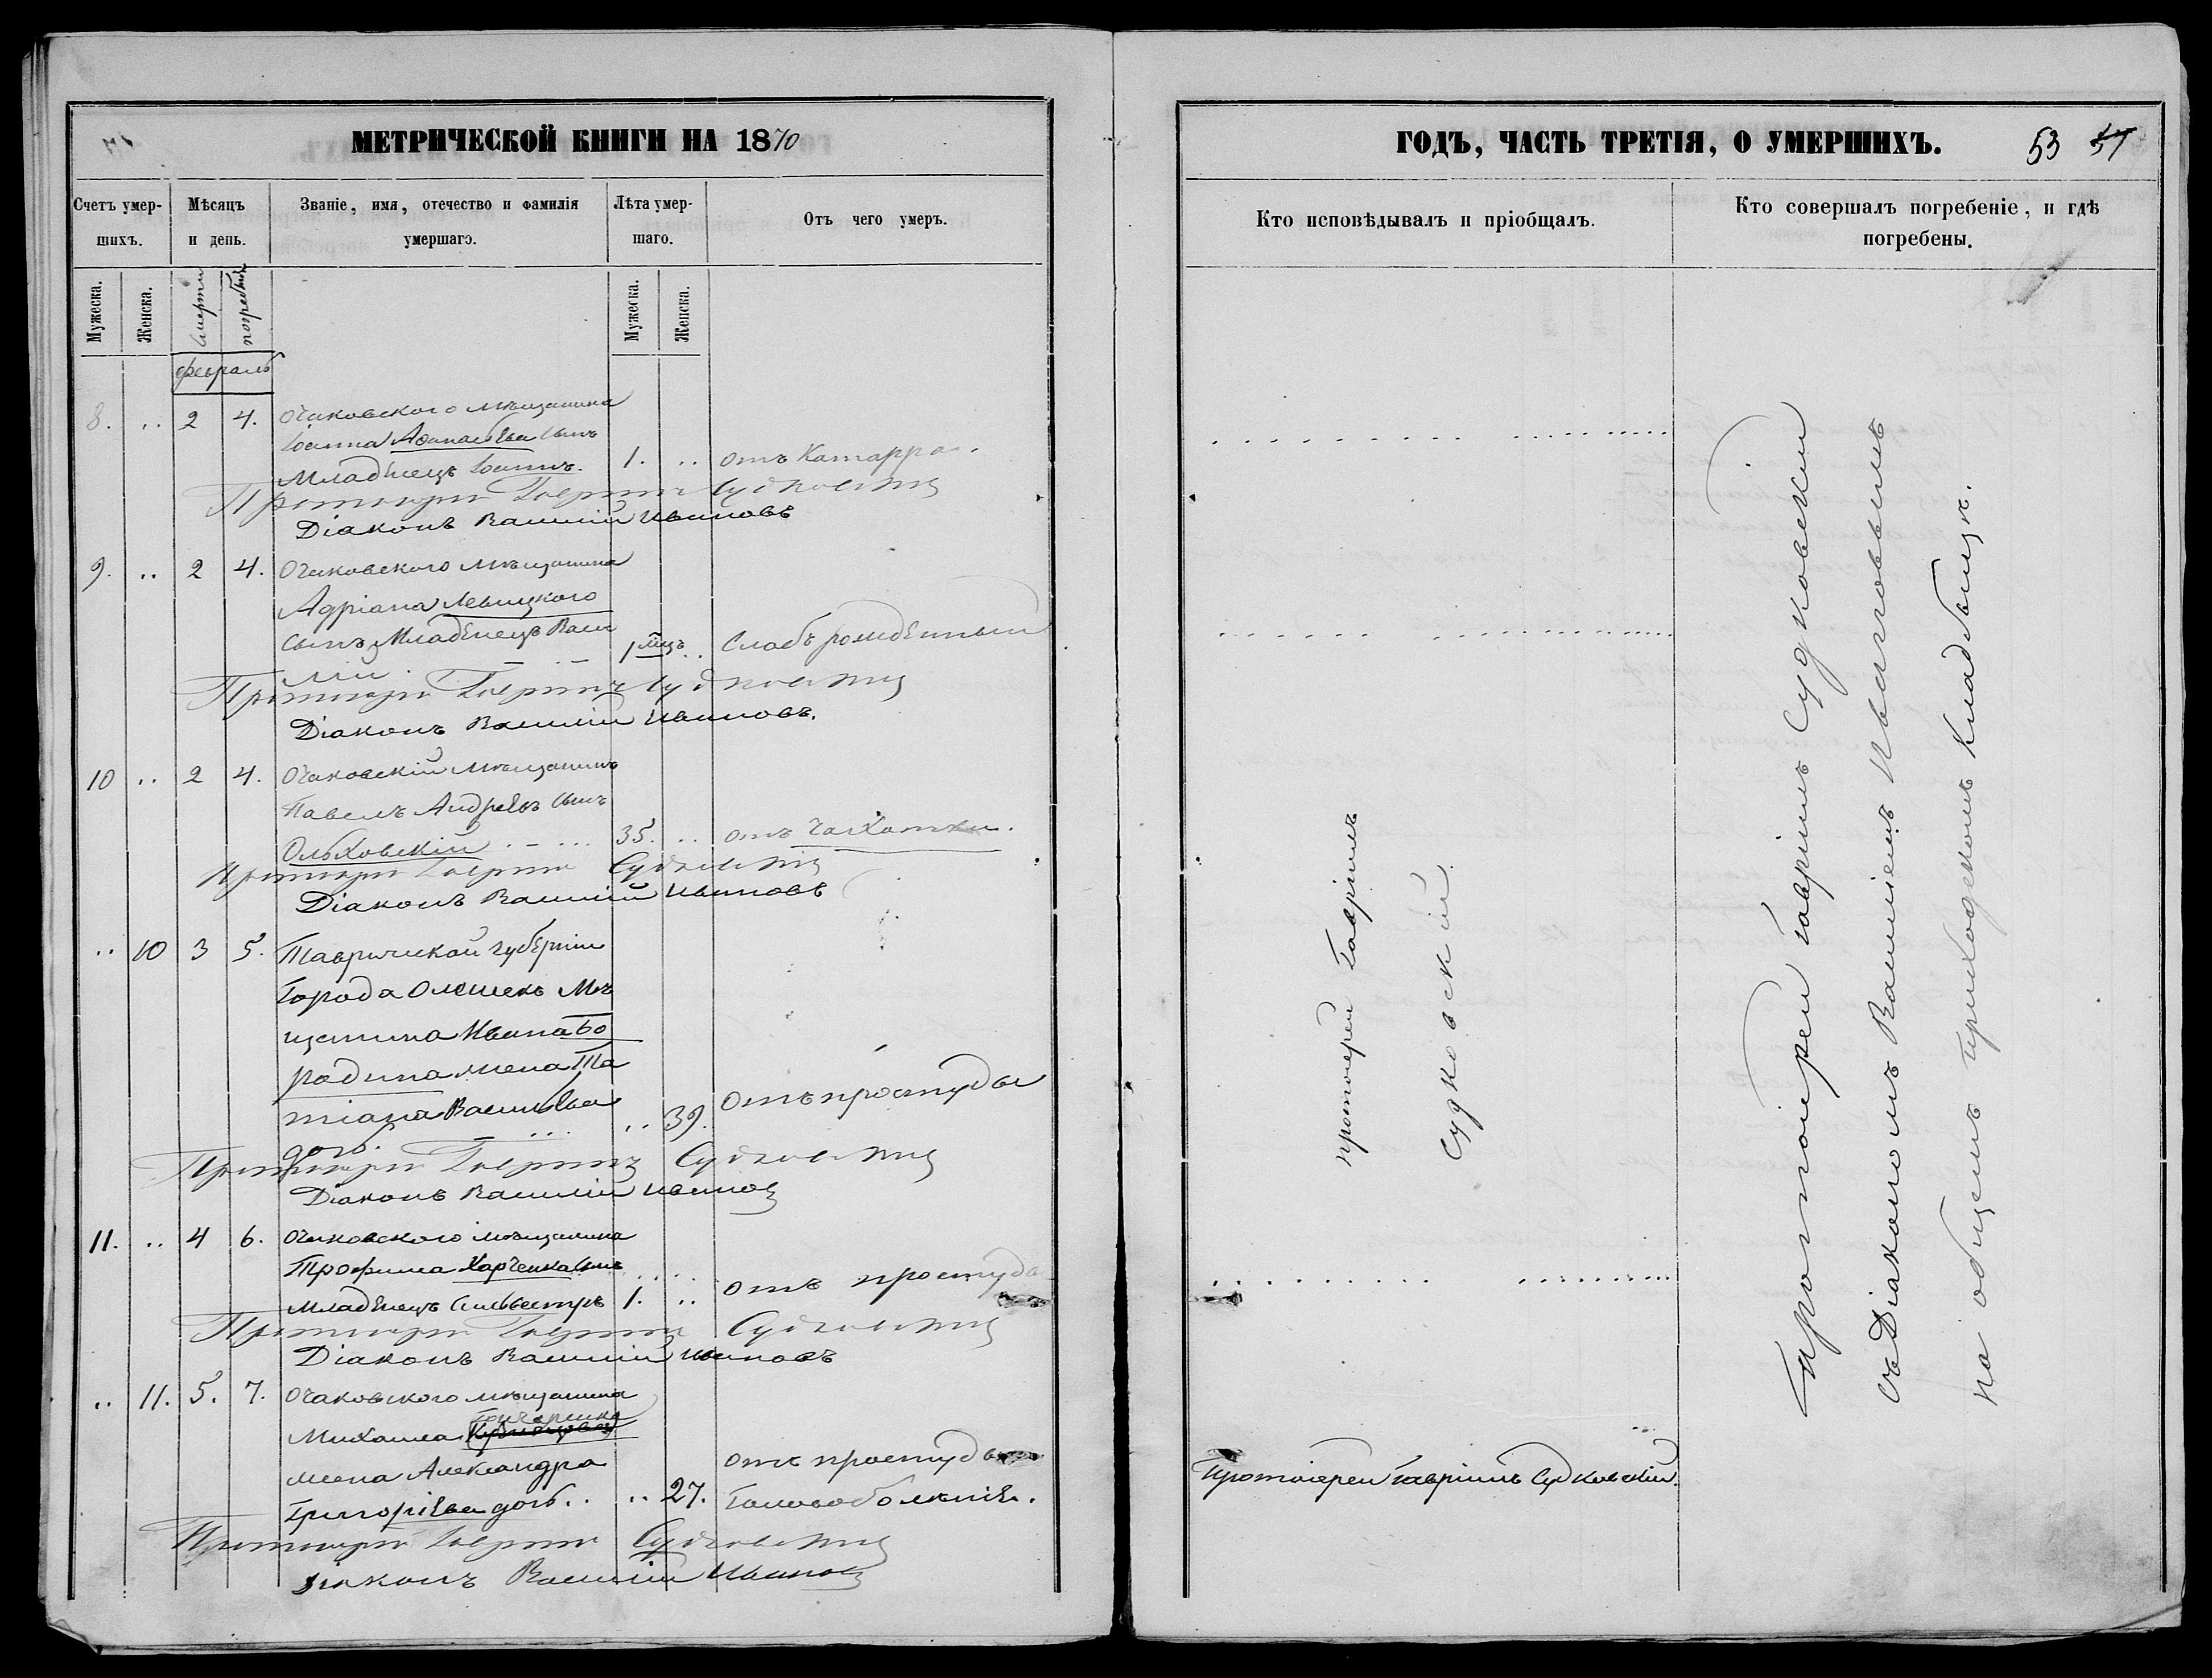 МЕТРИЧЕСКОЙ КНИГИ НА 1870
Счетъ умер-
шихъ.
Мѣсяцъ
и день.
Званіе, имя, отечество и фамилія
умершаго.
Лѣта умер-
шаго.
Отъ чего умеръ.
Мужеска.
Женска.
смерти
погребенія
Мужеска.
Женска.
февраль
8. .. 2 4. Очаковскаго мѣщанина
Іоанна Аѳанасьева сынъ
Младенецъ Іоаннъ. 1. .. отъ Катарра.
Протоіерей Гавріилъ Судковскій
Діаконъ Василій Ивановъ
9. .. 2 4. Очаковскаго мѣщанина
Адріана Левицкого
сынъ Младенецъ Васи
лій 1 мцъ .. Слабъ рожденный
Протоіерей Гавріилъ Судковскій
Діаконъ Василій Ивановъ.
10 .. 2 4. Очаковскій мѣщанинъ
Павелъ Андреевъ сынъ
Ольховскій 35. .. отъ Чахотки.
Протоіерей Гавріилъ Судковскій
Діаконъ Василій Ивановъ
.. 10 3 5. Таврической губерніи
Города Олешекъ Мѣ
щанина Ивана Бо
родина жена Та
тіана Васильева
дочь. .. 39. Отъ простуды
Протоіерей Гавріилъ Судковскій
Діаконъ Василій Ивановъ
11. .. 4 6. Очаковскаго мѣщанина
Трофима Харченка сынъ
Младенецъ Сильвестръ 1. .. отъ простуды
Протоіерей Гавріилъ Судковскій
Діаконъ Василій Ивановъ
.. 11. 5. 7. Очаковскаго мѣщанина
Гончаренка
Михаила
жена Александра
Григоріева дочь.. .. 27. отъ простуды
Головоболѣнія.
Протоіерей Гавріилъ Судковскій
Діаконъ Василій Ивановъ
ГОДЪ, ЧАСТЬ ТРЕТІЯ, О УМЕРШИХЪ.
53 57
Кто исповѣдывалъ и пріобщалъ.
Кто совершалъ погребеніе, и гдѣ
погребены.
протоіерей Гавріилъ
Судковскій.
Протоіерей Гавріилъ Судковскій.
Протоіерей Гавріилъ Судковскій
съ Діакономъ Василіемъ Ивановымъ
на общемъ приходскомъ кладбищѣ.